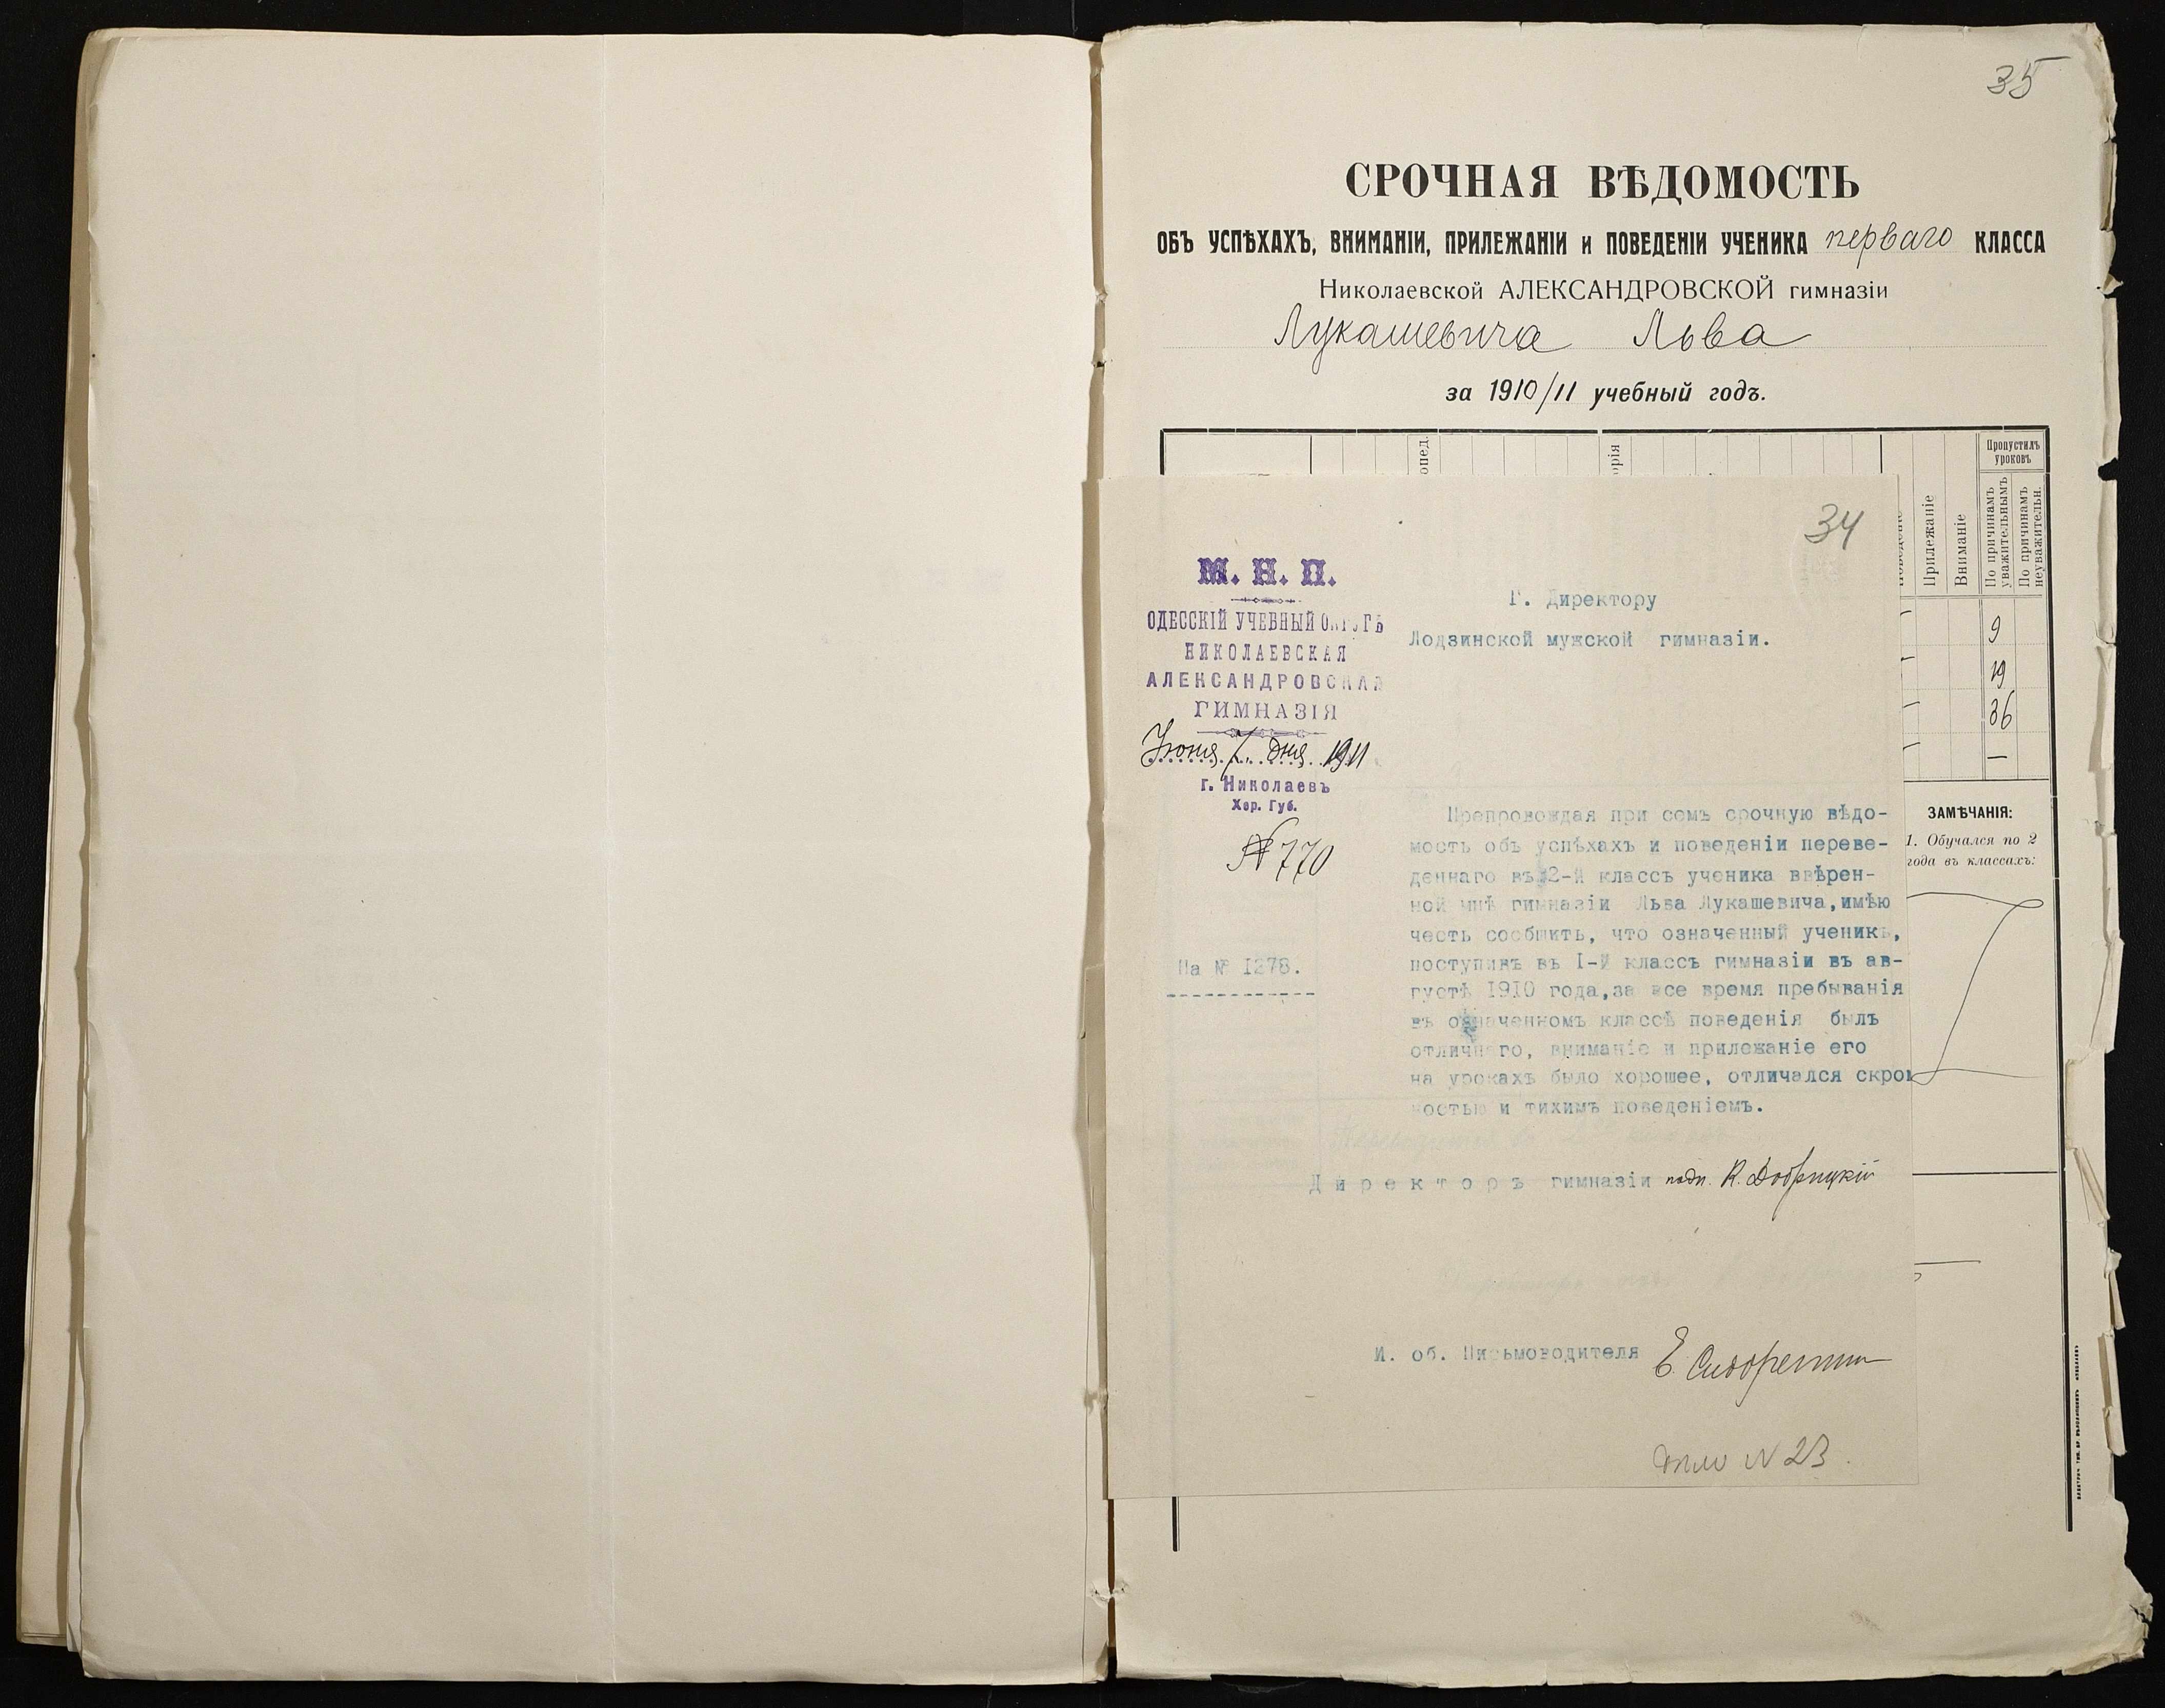 35
СРОЧНАЯ ВѢДОМОСТЬ
ОБЪ УСПѢХАХЪ, ВНИМАНІИ, ПРИЛЕЖАНІИ и ПОВЕДЕНІИ УЧЕНИКА перваго КЛАССА
Николаевской АЛЕКСАНДРОВСКОЙ гимназіи
Лукашевича Льва
за 1910/11 учебный годъ.
Пропустилъ
уроковъ
Прилежаніе
Вниманіе
По причинамъ
уважительнымъ
По причинамъ
неуважительн.
9
19
36
—
ЗАМѢЧАНІЯ:
1. Обучался по 2
года въ классахъ:
34
М. Н. П.
ОДЕССКІЙ УЧЕБНЫЙ ОКРУГЪ
НИКОЛАЕВСКАЯ
АЛЕКСАНДРОВСКАЯ
ГИМНАЗІЯ
Іюня 7 дня 1911
г. Николаевъ
Хер. Губ.
№ 770
На № 1278.
Г. Директору
Лодзинской мужской гимназіи.
Препровождая при семъ срочную вѣдо-
мость объ успѣхахъ и поведеніи переве-
деннаго въ 2-й классъ ученика ввѣрен-
ной мнѣ гимназіи Льва Лукашевича, имѣю
честь сообщить, что означенный ученикъ,
поступивъ въ I-й классъ гимназіи въ ав-
густѣ 1910 года, за все время пребыванія
въ означенномъ классѣ поведенія былъ
отличнаго, вниманіе и прилежаніе его
на урокахъ было хорошее, отличался скром
ностью и тихимъ поведеніемъ.
Директоръ гимназіи подп. К. Добрицкій
И. об. Письмоводителя Е.
N 23.